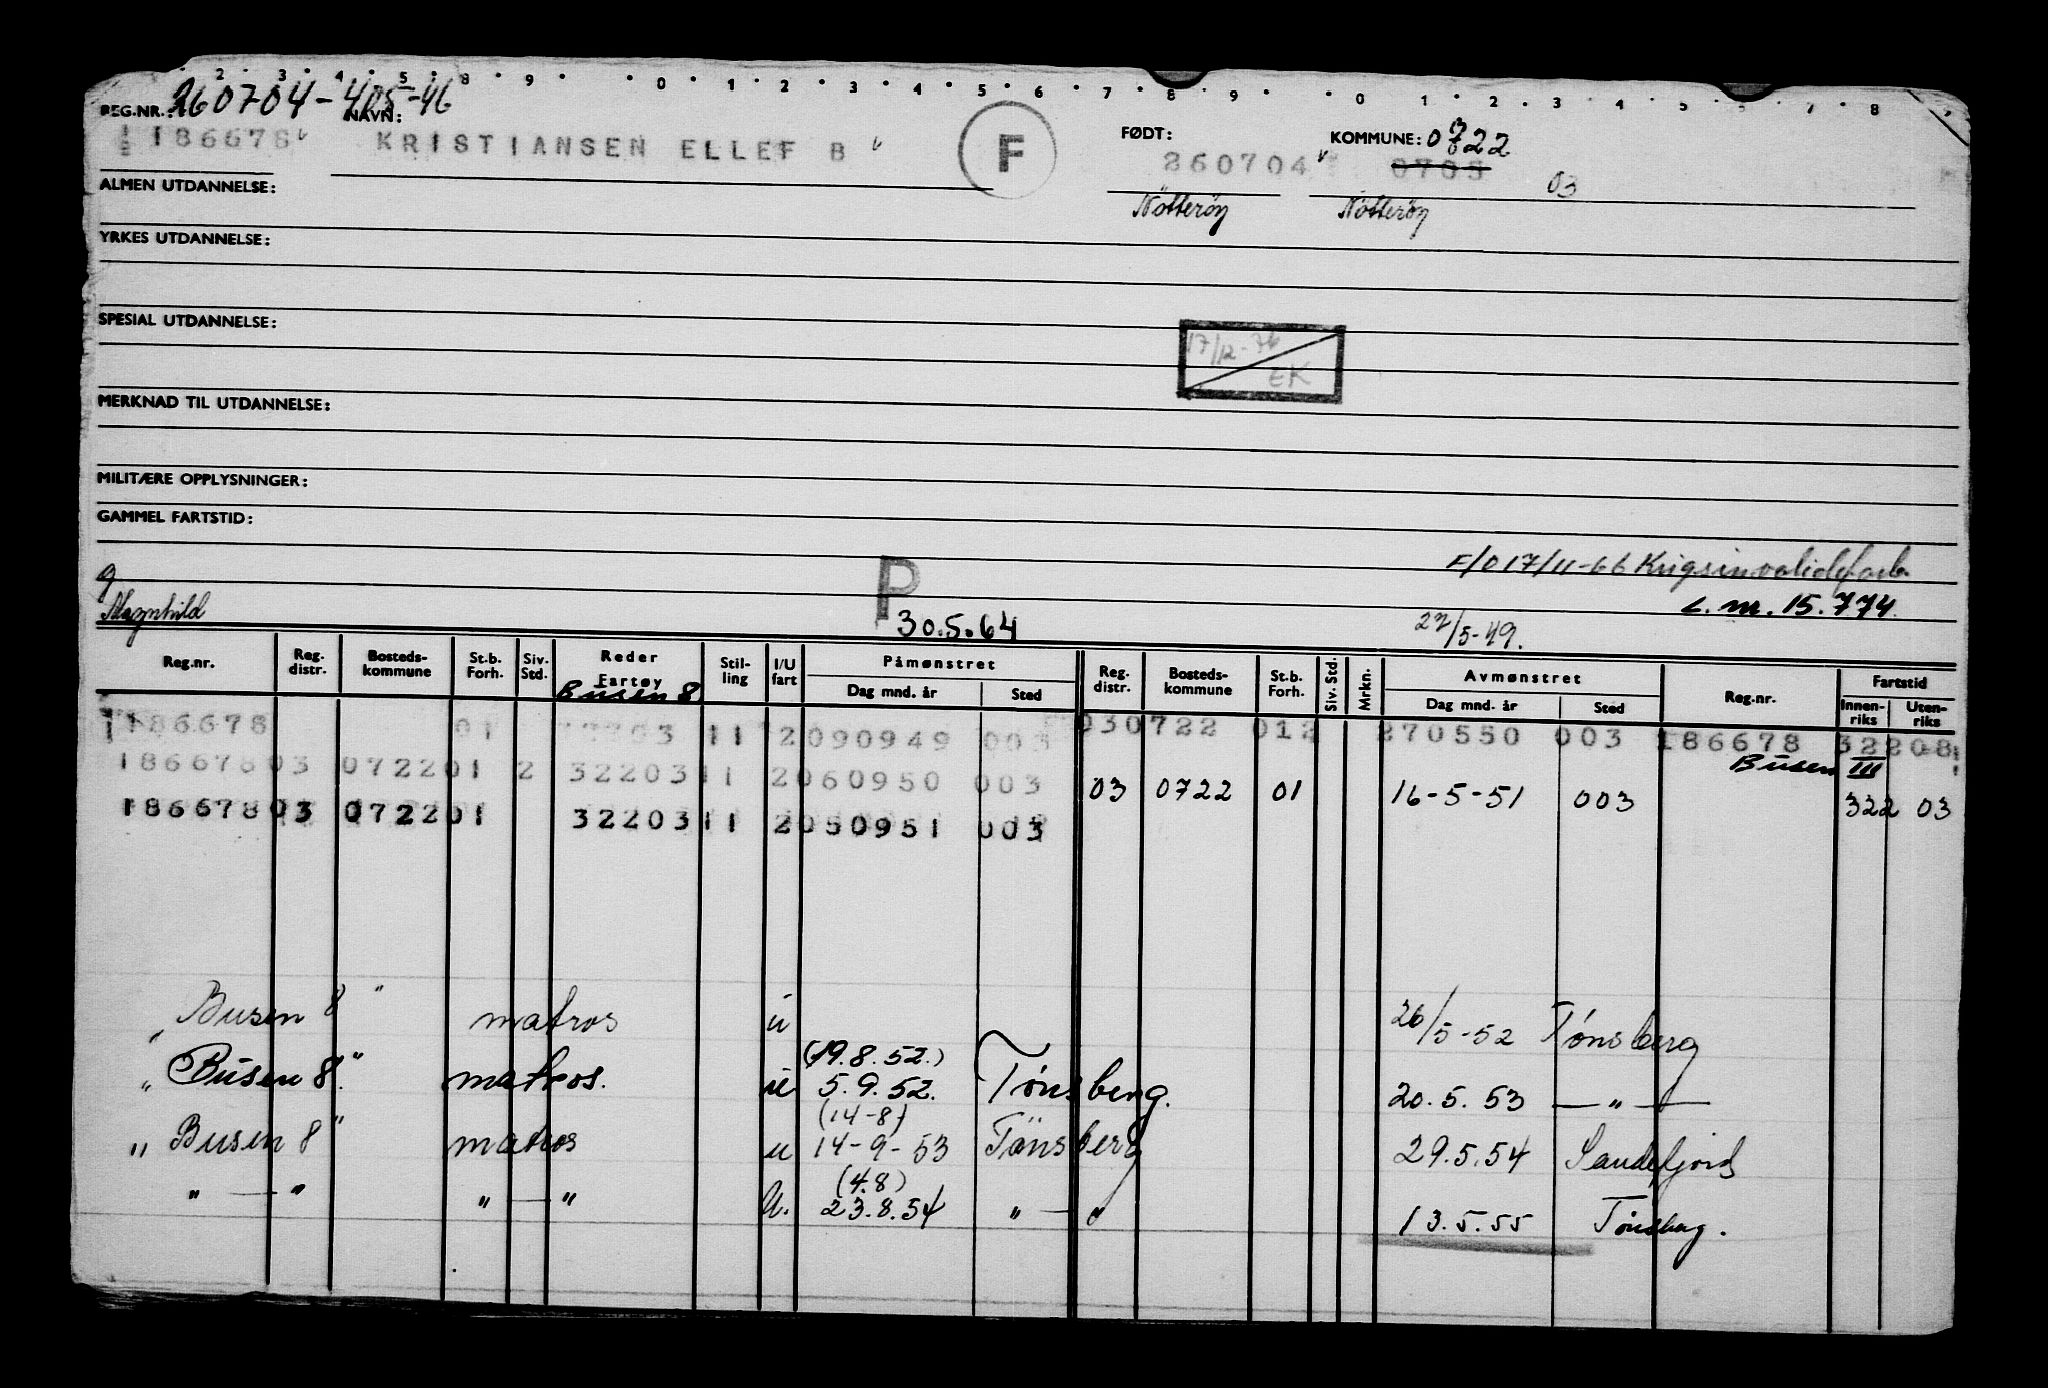 2 3 4 5 8 9 0 1 2 3 4 5 6 7 8 9 0 1 2 3 4 5 6 7 8
REG.NR.: 260704-405-46
NAVN:
186678 KRISTIANSEN ELLEF B F
FØDT: 260704 KOMMUNE: 0722
0705 03
Nötteröy Nötteröy
ALMEN UTDANNELSE:
YRKES UTDANNELSE:
SPESIAL UTDANNELSE:
17/12-76
EK
MERKNAD TIL UTDANNELSE:
MILITÆRE OPPLYSNINGER:
GAMMEL FARTSTID:
F/O 17/11-66 Krigsinvalideforb.
L. nr. 15.774.
g
Magnhild
P
30.5.64
27/5-49.
Reg.nr. Reg. distr. Bosteds-kommune St.b. Forh. Siv. Std. Reder Fartøy Stil-ling I/U fart Påmønstret Dag mnd. år Sted Reg. distr. Bosteds-kommune St.b. Forh. Siv. Std. Mrkn. Avmønstret Dag mnd. år Sted Reg.nr. Fartstid Innen-riks Uten-riks
Busen 8
186678 01 2203 11 2 090949 003 03 0722 012 270550 003 186678 32208
Busen III
186678 03 0722 01 2 32203 11 2 060950 003 03 0722 01 16-5-51 003 322 03
186678 03 0722 01 32203 11 2 050951 003
Busen 8" matros u 26/5-52 Tønsberg
(19.8.52.)
" Busen 8." matros. u 5.9.52. Tønsberg. 20.5.53 — " —
(14-8)
" Busen 8" matros u 14-9-53 Tönsberg 29.5.54 Sandefjord
(4.8)
" — " " — " U. 23.8.54 " — " 13.5.55 Tönsberg.